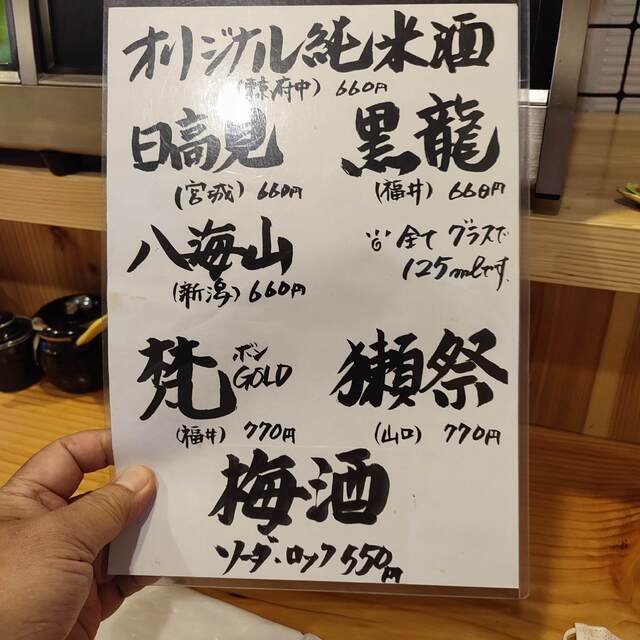 オリジナル純米酒
(東京府中) 660円
日高見
(宮城) 660円
黒龍
(福井) 660円
八海山
(新潟) 660円
全て グラスで
125mlです。
梵 ボン
GOLD
(福井) 770円
獺祭
(山口) 770円
梅酒
ソーダ・ロック 550円